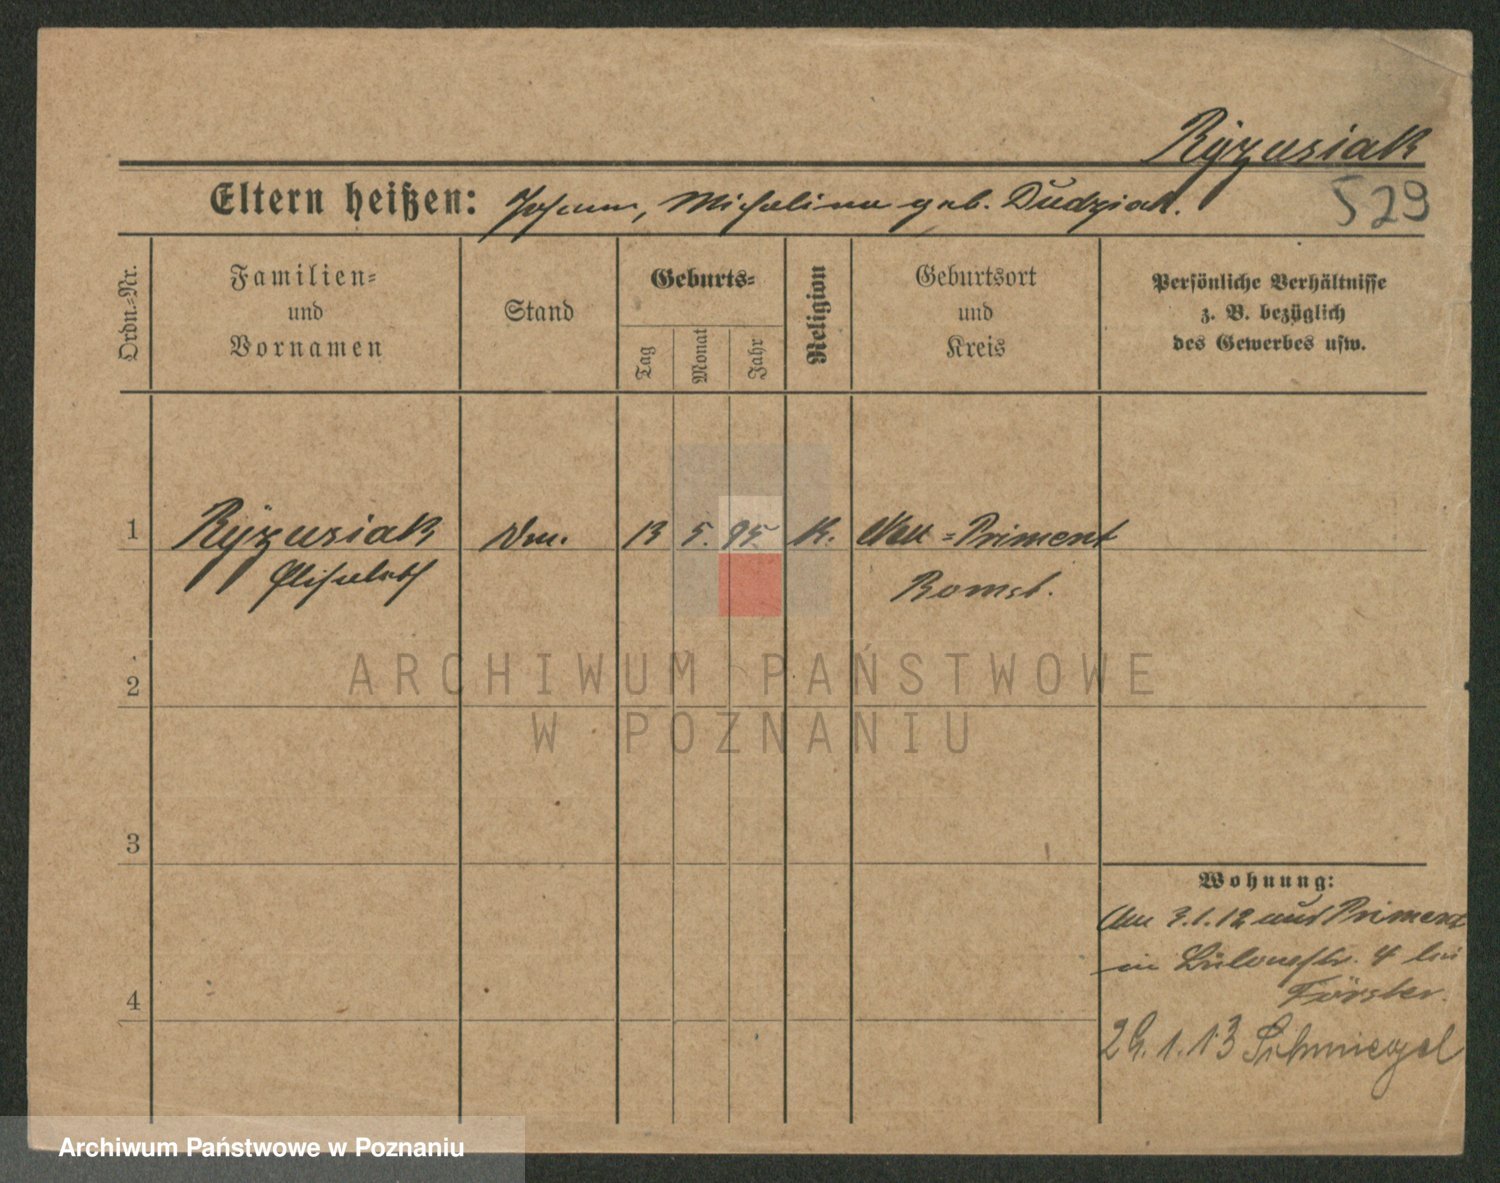 Ryzusiak
529
Eltern heißen: Johann, Michalina geb. Dudziak.
Ordn.-Nr.
Familien-
und
Vornamen
Stand
Geburts-
Tag
Monat
Jahr
Religion
Geburtsort
und
Kreis
Persönliche Verhältnisse
z. B. bezüglich
des Gewerbes usw.
1 Ryzusiak 13 5. 95 K. Neu-Priment
Elisabeth Bomst.
2
3
4
Wohnung:
Am 3.1.12 aus Priment
in Bülowstr. 4 bei
Förster.
29.1.13 Schmiegel
ARCHIWUM PAŃSTWOWE
W POZNANIU
Archiwum Państwowe w Poznaniu